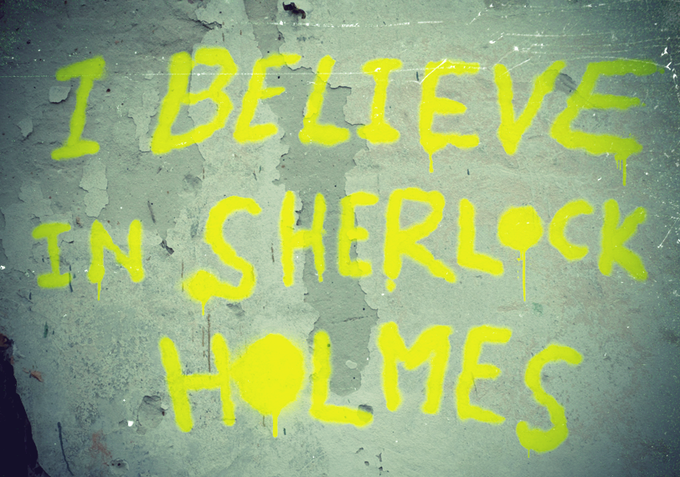 I BELIEVE
IN SHERLOCK
HOLMES